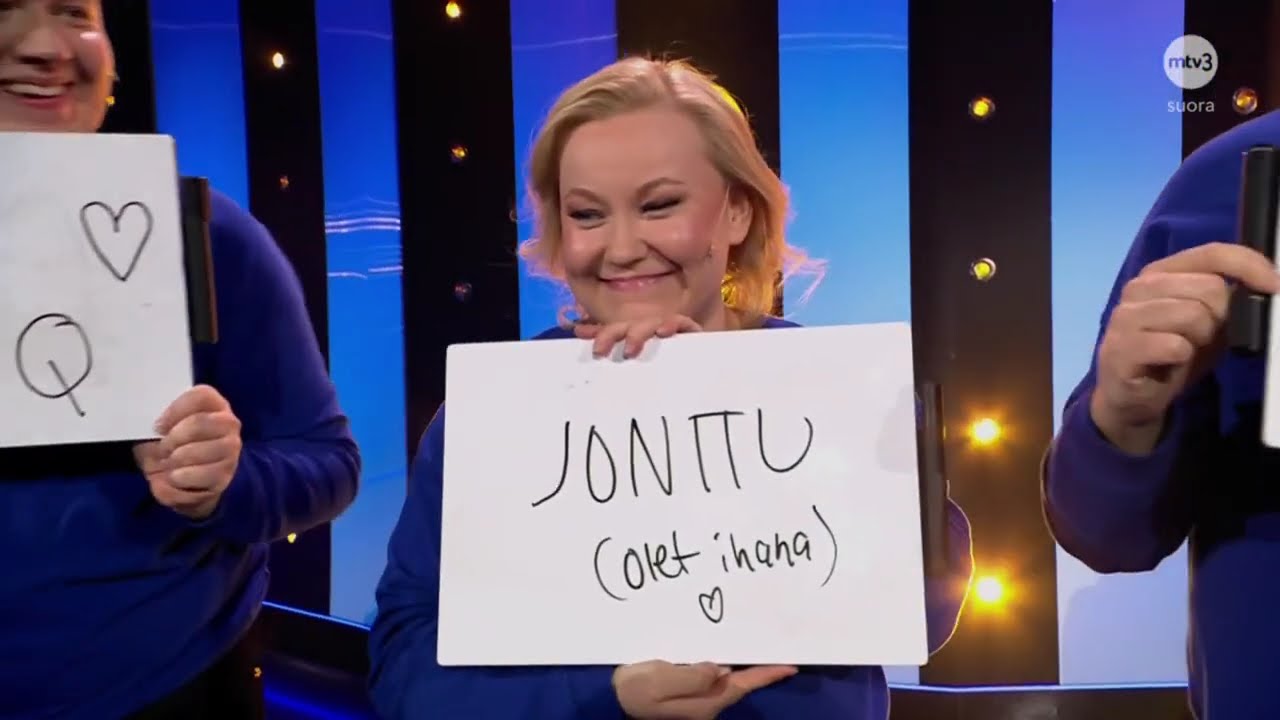 mtv3
suora
Q
JONTTU
(olet ihana)